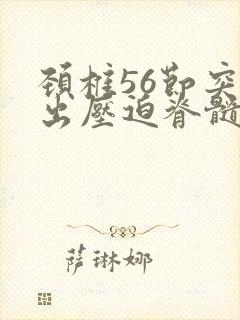 頚椎56節突
出壓迫脊髓
萨琳娜